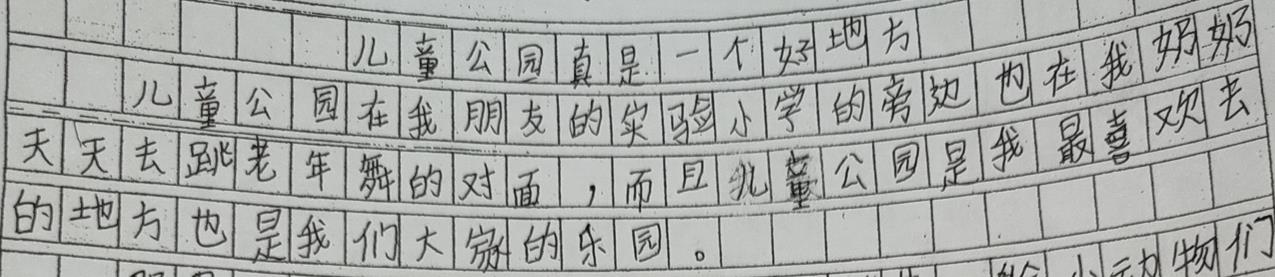 儿童公园真是一个好地方
儿童公园在我朋友的实验小学的旁边也在我奶奶
天天去跳老年舞的对面，而且儿童公园是我最喜欢去
的地方也是我们大家的乐园。
小动物们